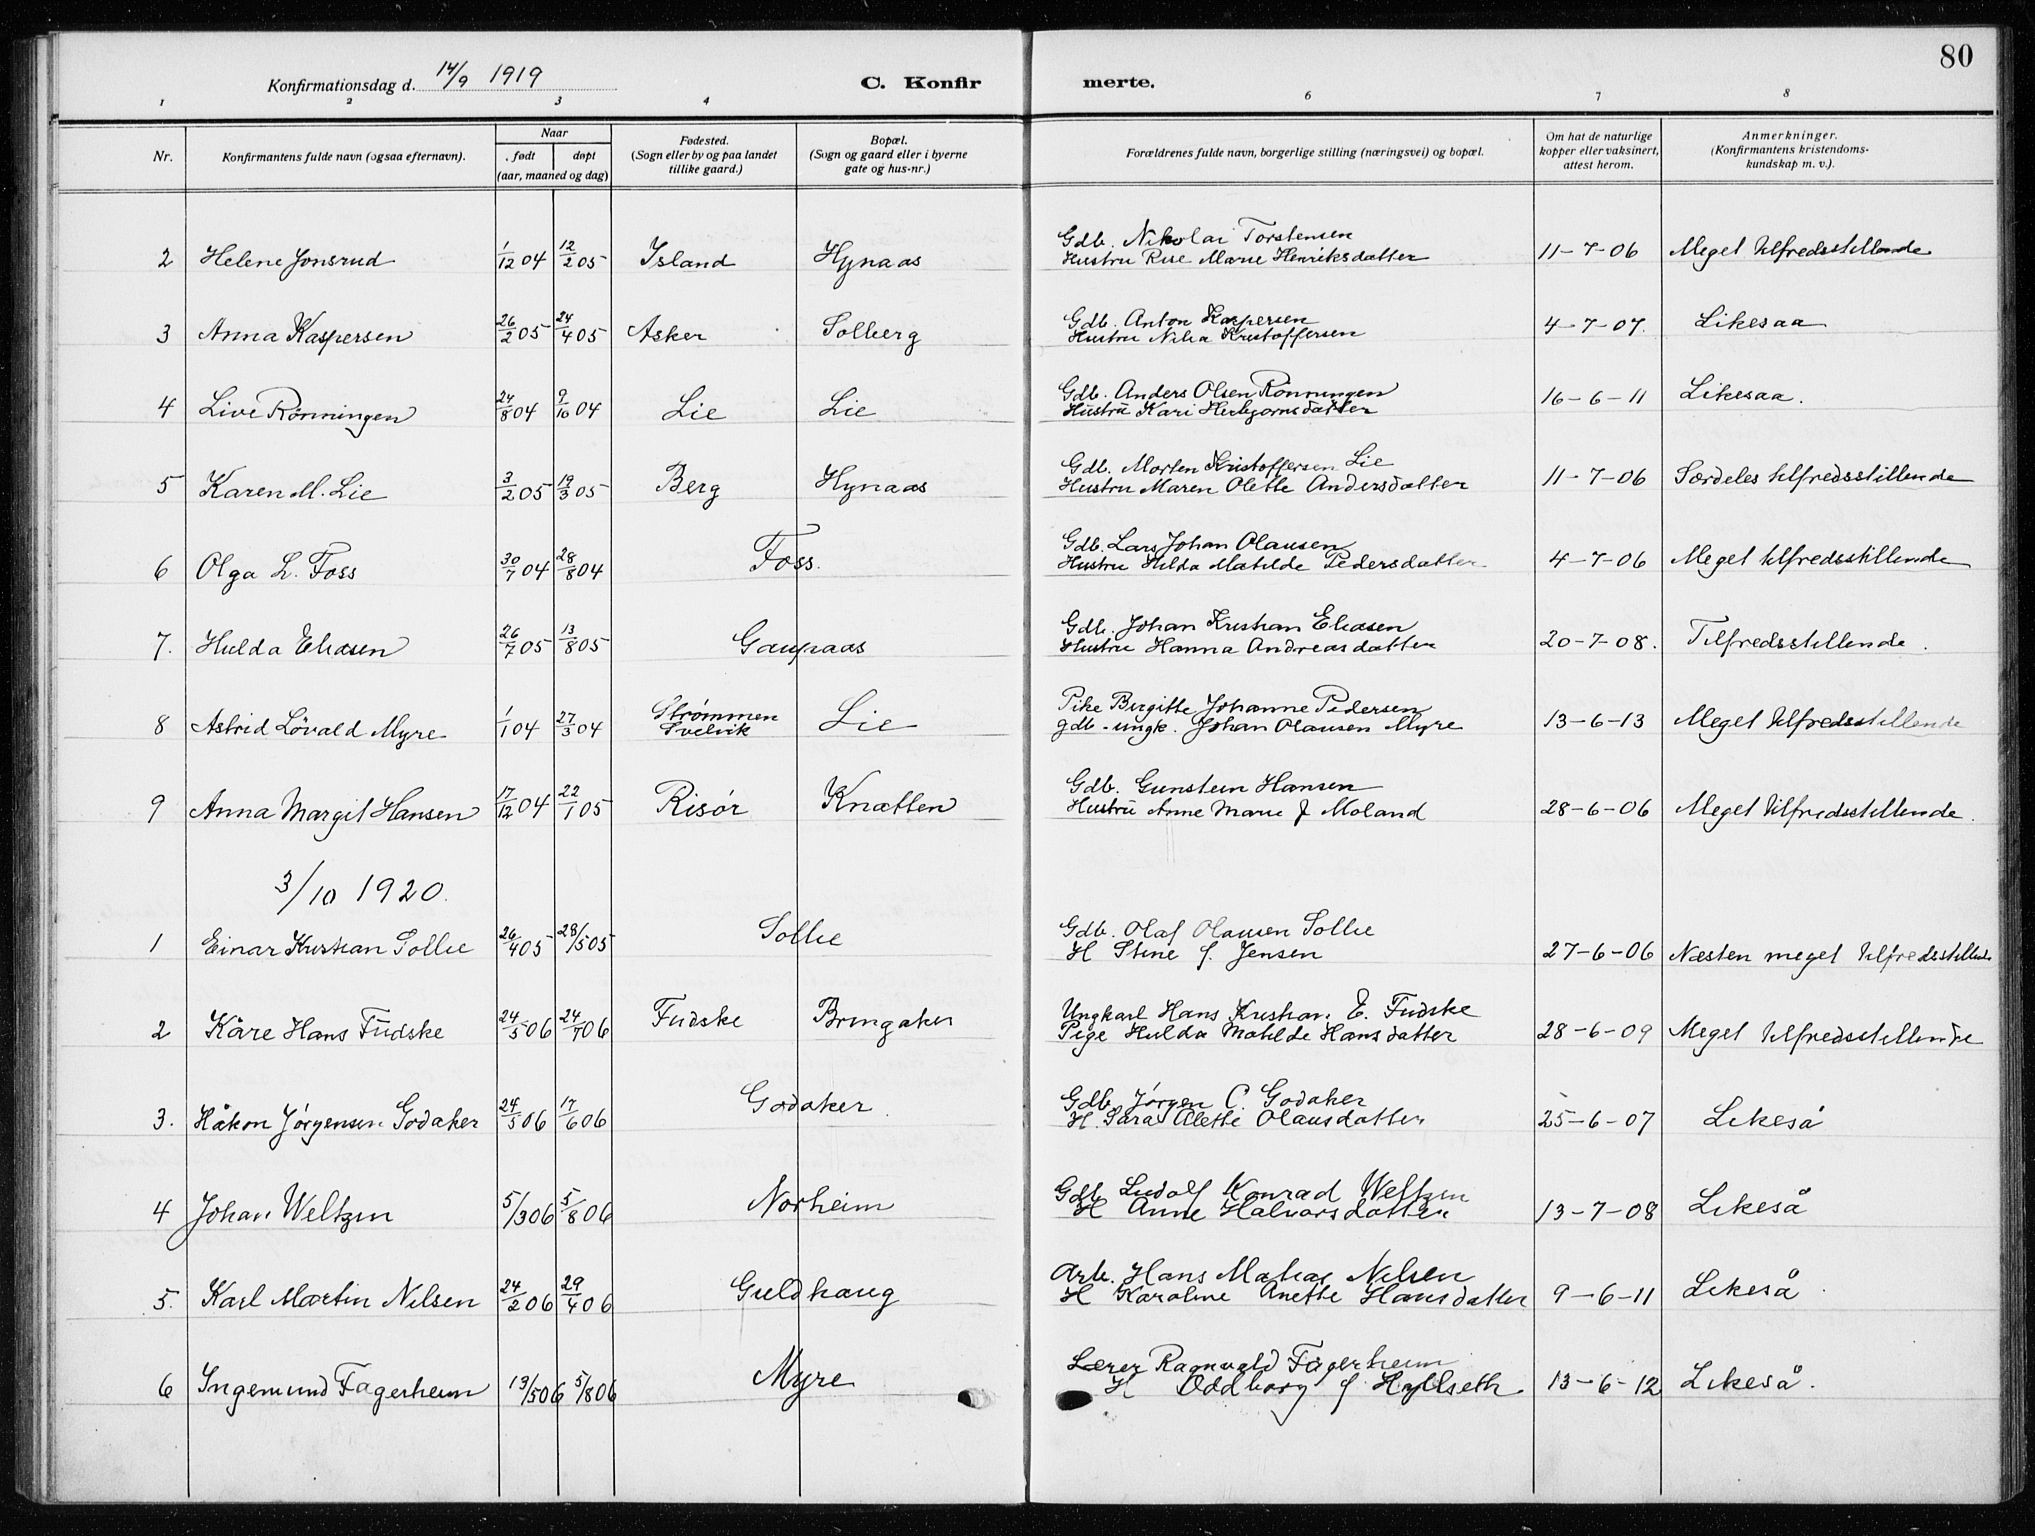 80
Konfirmationsdag d. 14/9 1919 C. Konfirmerte.
1 2 3 4 6 7 8
Nr. Konfirmantens fulde navn (ogsaa efternavn). Naar født døpt (aar, maaned og dag) Fødested. (Sogn eller by og paa landet tillike gaard.) Bopæl. (Sogn og gaard eller i byerne gate og hus-nr.) Forældrenes fulde navn, borgerlige stilling (næringsvei) og bopæl. Om hat de naturlige kopper eller vaksinert, attest herom. Anmerkninger. (Konfirmantens kristendomskundskap m. v.).
2 Helene Jonsrud 1/12 04 12/2 05 Island Hynaas Gdb. Nikolai Torstensen
Hustru Rise Marie Henriksdatter 11-7-06 Meget tilfredsstillende
3 Anna Kaspersen 26/2 05 24/4 05 Asker Solberg Gdb. Anton Kaspersen
Hustru Kristoffersen 4-7-07. Likesaa
4 Live Rönningen 24/8 04 9/10 04 Lie Lie Gdb. Anders Olsen Rönningen
Hustru Kari Herbjornsdatter 16-6-11 Likesaa.
5 Karen M. Lie 3/2 05 19/3 05 Berg Hynaas Gdb. Morten Kristoffersen Lie
Hustru Maren Olette Andersdatter 11-7-06 Særdeles tilfredsstillende
6 Olga L. Foss 30/7 04 28/8 04 Foss. Gdb. Lars Johan Olausen
Hustru Hilda Matilde Pedersdatter 4-7-06 Meget tilfredsstillende
7. Hulda Eliasen 26/7 05 13/8 05 Gaupaas Gdb. Johan Kristian Eliasen
Hustru Hanna Andreasdatter 20-7-08. Tilfredsstillende.
8 Astrid Lövald Myre 1/1 04 27/3 04 Strømmen Svelvik Lie Pike Birgitte Johanne Pedersen
gdb-ungk. Johan Olausen Myre 13-6-13 Meget tilfredsstillende
9 Anna Margit Hansen 17/12 04 22/1 05 Risør Knatten Gdb. Gunstein Hansen
Hustru Anne Marie f Moland 28-6-06 Meget tilfredsstillende.
3/10 1920.
1 Einar Kristian Sollie 26/4 05 28/5 05 Sollie Gdb. Olaf Olausen Sollie
H Stine f. Jensen 27-6-06 Næsten meget tilfredsstillende
2 Kåre Hans Fudske 24/5 06 24/7 06 Fudske Bringaker Ungkarl Hans Kristian E. Fudske
Pige Hulda Matilde Hansdatter 28-6-09 Meget tilfredsstillende
3. Håkon Jörgensen Godaker 24/5 06 17/6 06 Godaker. Gdb Jörgen C. Godaker
H. Sara Alette Olausdatter 25-6-07 Likeså
4 Johan Weltzin 5/3 06 5/8 06 Norheim Gdb Ludolf Konrad Weltzin
H Anne Halvorsdatter 13-7-08 Likeså
5. Karl Martin Nilsen 24/2 06 29/4 06 Guldhaug Arb. Hans Matias Nilsen
H Karoline Anette Hansdatter 9-6-11 Likeså.
6 Ingemund Fagerheim 13/5 06 5/8 06 Myre Lærer Ragnvald Fagerheim
H Oddborg f Hyllseth 13-6-12 Likeså.